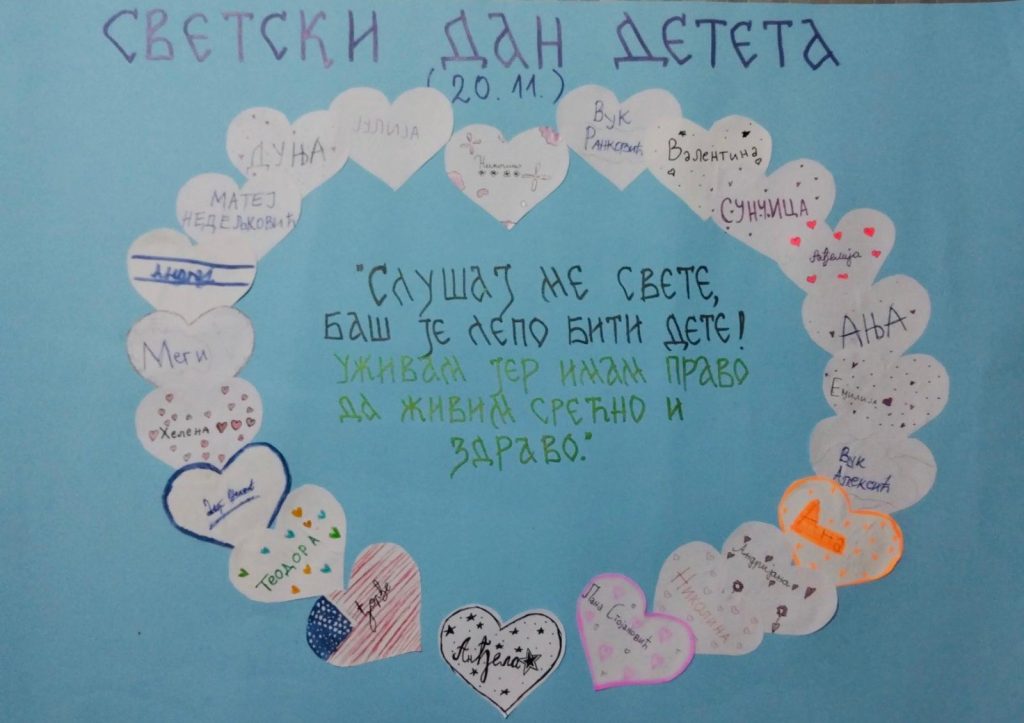 СВЕТСКИ ДАН ДЕТЕТА
(20.11.)
"СЛУШАЈ МЕ СВЕТЕ,
БАШ ЈЕ ЛЕПО БИТИ ДЕТЕ!
УЖИВАМ ЈЕР ИМАМ ПРАВО
ДА ЖИВИМ СРЕЋНО И
ЗДРАВО."
Вук
Ранковић
Валентина
СУНЧИЦА
АЊА
Емилим
Вук
Алексић
Ана
Андријана
Николина
Лана Стојановић
Анђела
Ђорђе
ТЕОДОРА
Хелена
Меги
Андреј
МАТЕЈ
НЕДЕЉКОВИЋ
ДУЊА
ЈУЛИЈА